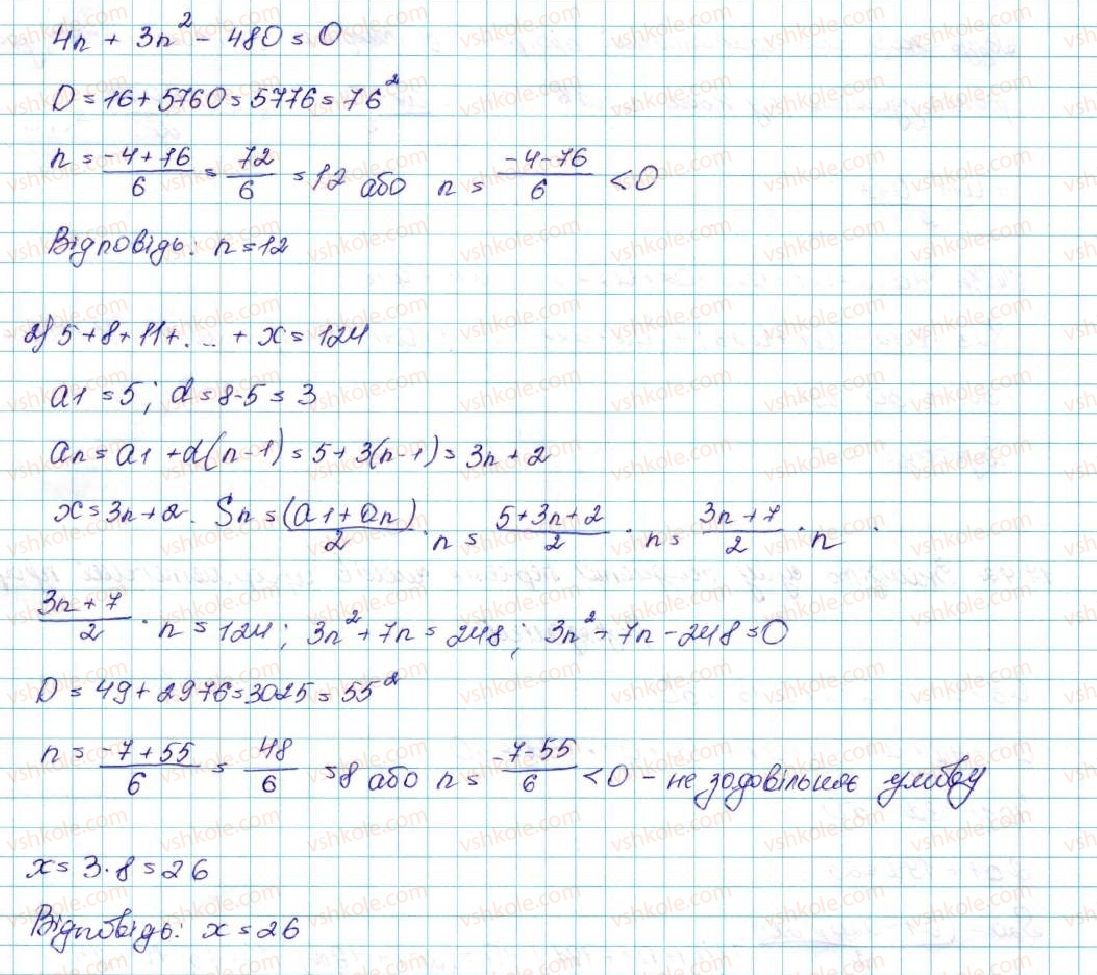 4n + 3n² - 480 = 0
D = 16 + 5760 = 5776 = 76²
n = (-4 + 76)/6 = 72/6 = 12 або n = (-4 - 76)/6 < 0
Відповідь: n = 12
2) 5 + 8 + 11 + ... + x = 124
a1 = 5; d = 8 - 5 = 3
an = a1 + d(n - 1) = 5 + 3(n - 1) = 3n + 2
x = 3n + 2. Sn = (a1 + an)/2 · n = (5 + 3n + 2)/2 · n = (3n + 7)/2 · n
(3n + 7)/2 · n = 124; 3n² + 7n = 248; 3n² + 7n - 248 = 0
D = 49 + 2976 = 3025 = 55²
n = (-7 + 55)/6 = 48/6 = 8 або n = (-7 - 55)/6 < 0 - не задовільняє умову
x = 3 · 8 = 26
Відповідь: x = 26